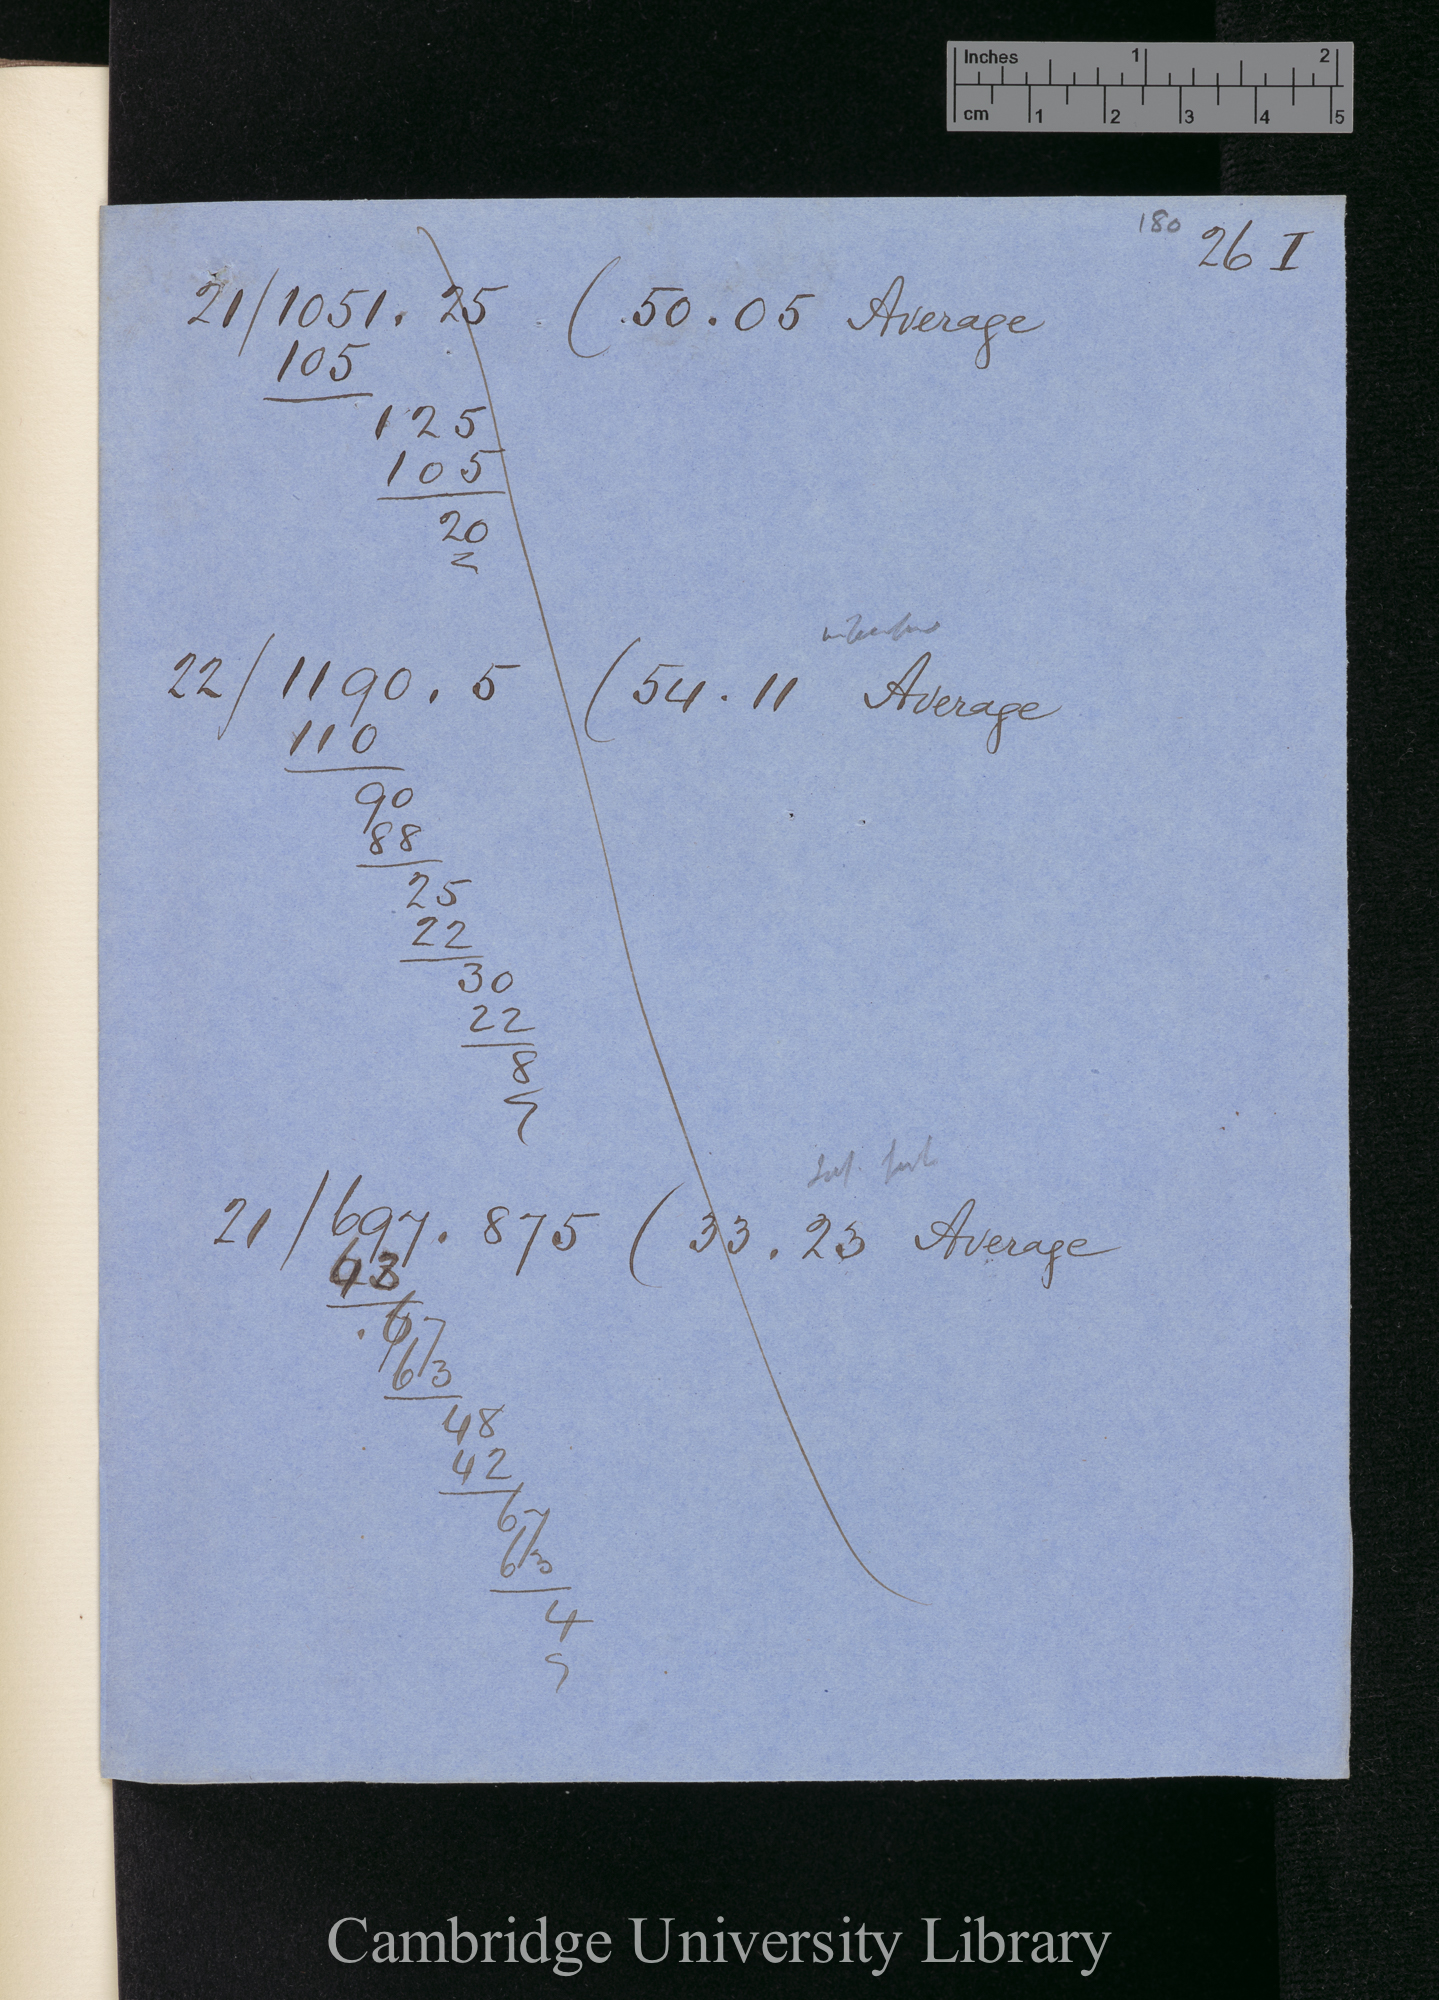 Inches 1 2
cm 1 2 3 4 5
180 26 I
21/1051.25 (50.05 Average
105
125
105
20
22/1190.5 (54.11 Average
110
90
88
25
22
30
22
8
21/697.875 (33.23 Average
63
67
63
48
42
67
63
4
Cambridge University Library